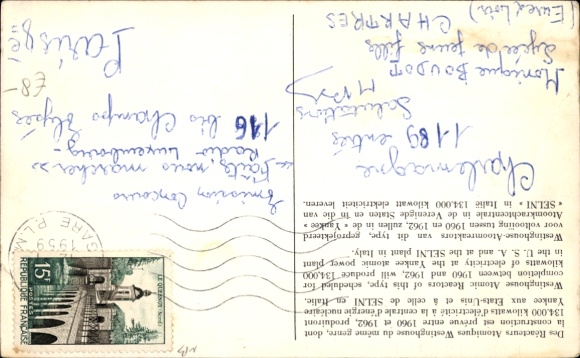 Emission Concours
" Parle, nous marchons "
Radio Luxembourg -
116 bis Champs Elysées
Paris 8e
£8-
Charlemagne
1189 entrées
Salutations
Monique BOUDOT
Lycée de jeunes filles
CHARTRES
(Eure et Loir)
GARE P.L.M.
1959
15F
POSTES
REPUBLIQUE FRANÇAISE
LE QUESNOY (Nord)
Des Réacteurs Atomiques Westinghouse du même genre, dont
la construction est prévue entre 1960 et 1962, produiront
134.000 kilowatts d'électricité à la centrale d'énergie nucléaire
Yankee aux Etats-Unis et à celle de SELNI en Italie.
Westinghouse Atomic Reactors of this type, scheduled for
completion between 1960 and 1962, will produce 134,000
kilowatts of electricity at the Yankee atomic power plant
in the U. S. A. and at the SELNI plant in Italy.
Westinghouse-Atoomreaktors van dit type, geprojekteerd
voor voltooiing tussen 1960 en 1962, zullen in de « Yankee »
Atoomkrachtcentrale in de Verenigde Staten en in die van
« SELNI » in Italië 134.000 kilowatt elektriciteit leveren.